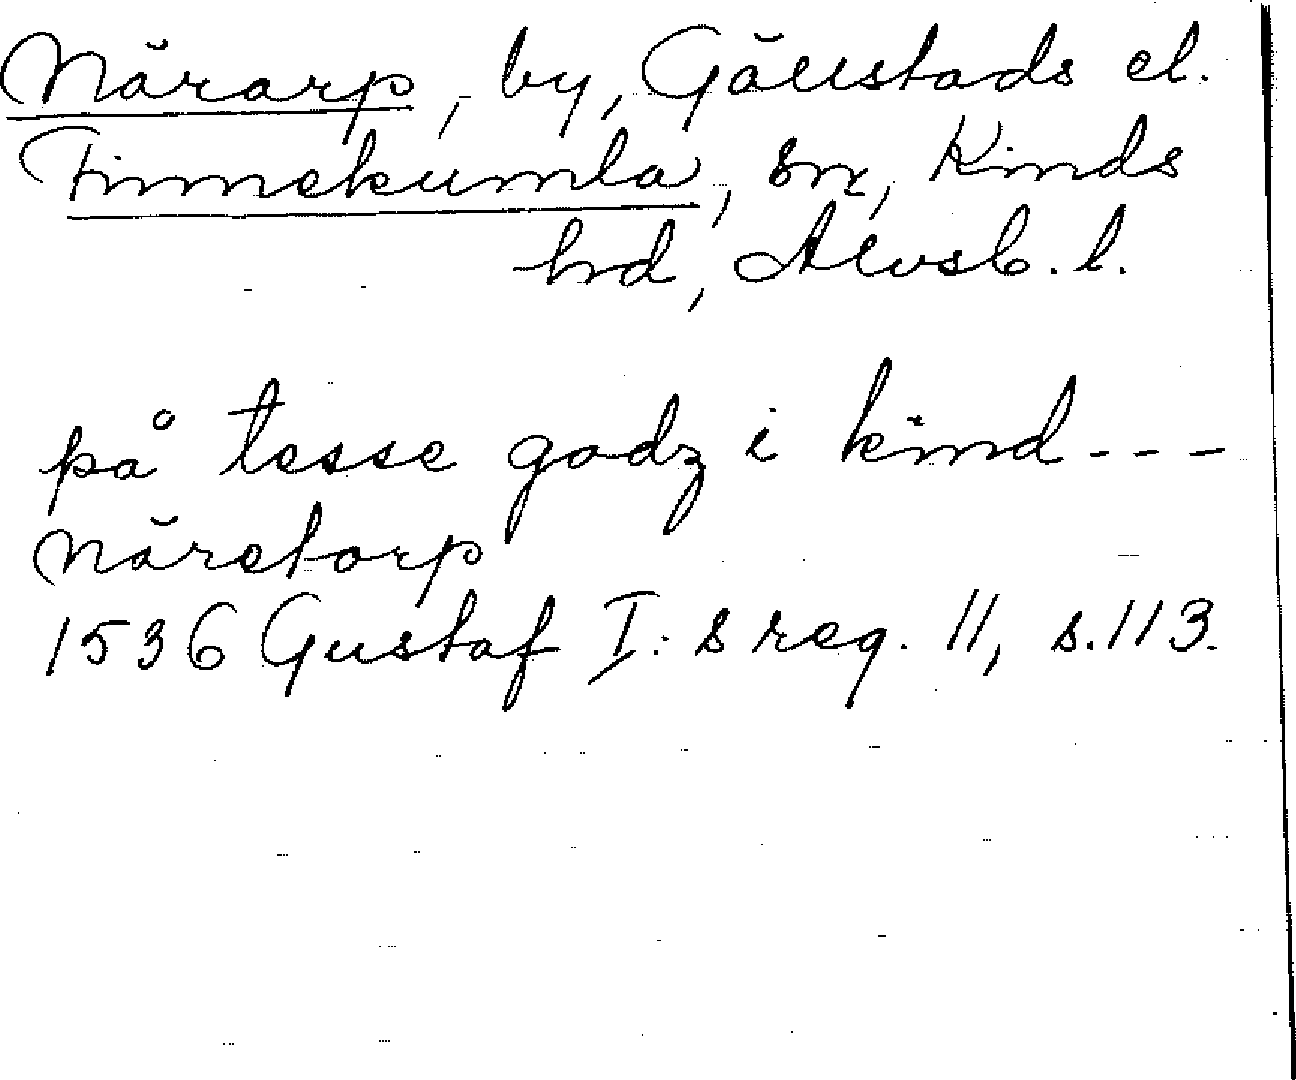 Närarp, by, Gällstads el.
Finnekumla, sn, Kinds
hd, Älvsb. l.
på tesse godz i kind---
näretorp
1536 Gustaf I:s reg. 11, s.113.